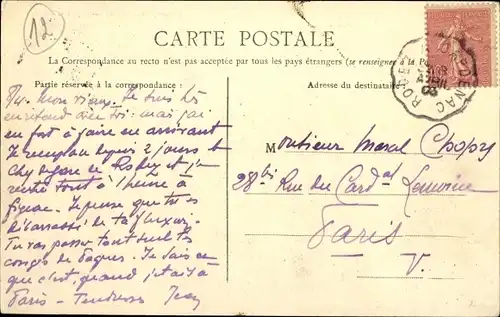 12
CARTE POSTALE
La Correspondance au recto n'est pas acceptée par tous les pays étrangers (se renseigner à la Po
Partie réservée à la correspondance :
Adresse du destinataire
mon vieux. Je suis très
en retard avec toi : mais j'ai
eu fort à faire en arrivant
Je remplace depuis 2 jours le
Chef de gare de Rodez et j'
reste tout à l'heure à
figeac. Je pense que tu es
débarrassé de ta
Tu vas passer tout seul les
congés de Pâques. Je sais ce
que c'est, quand j'étais à
Paris - Tendresses Jean
Monsieur Marcel Chopy
28 bis Rue du Card al Lemoine
Paris
V.